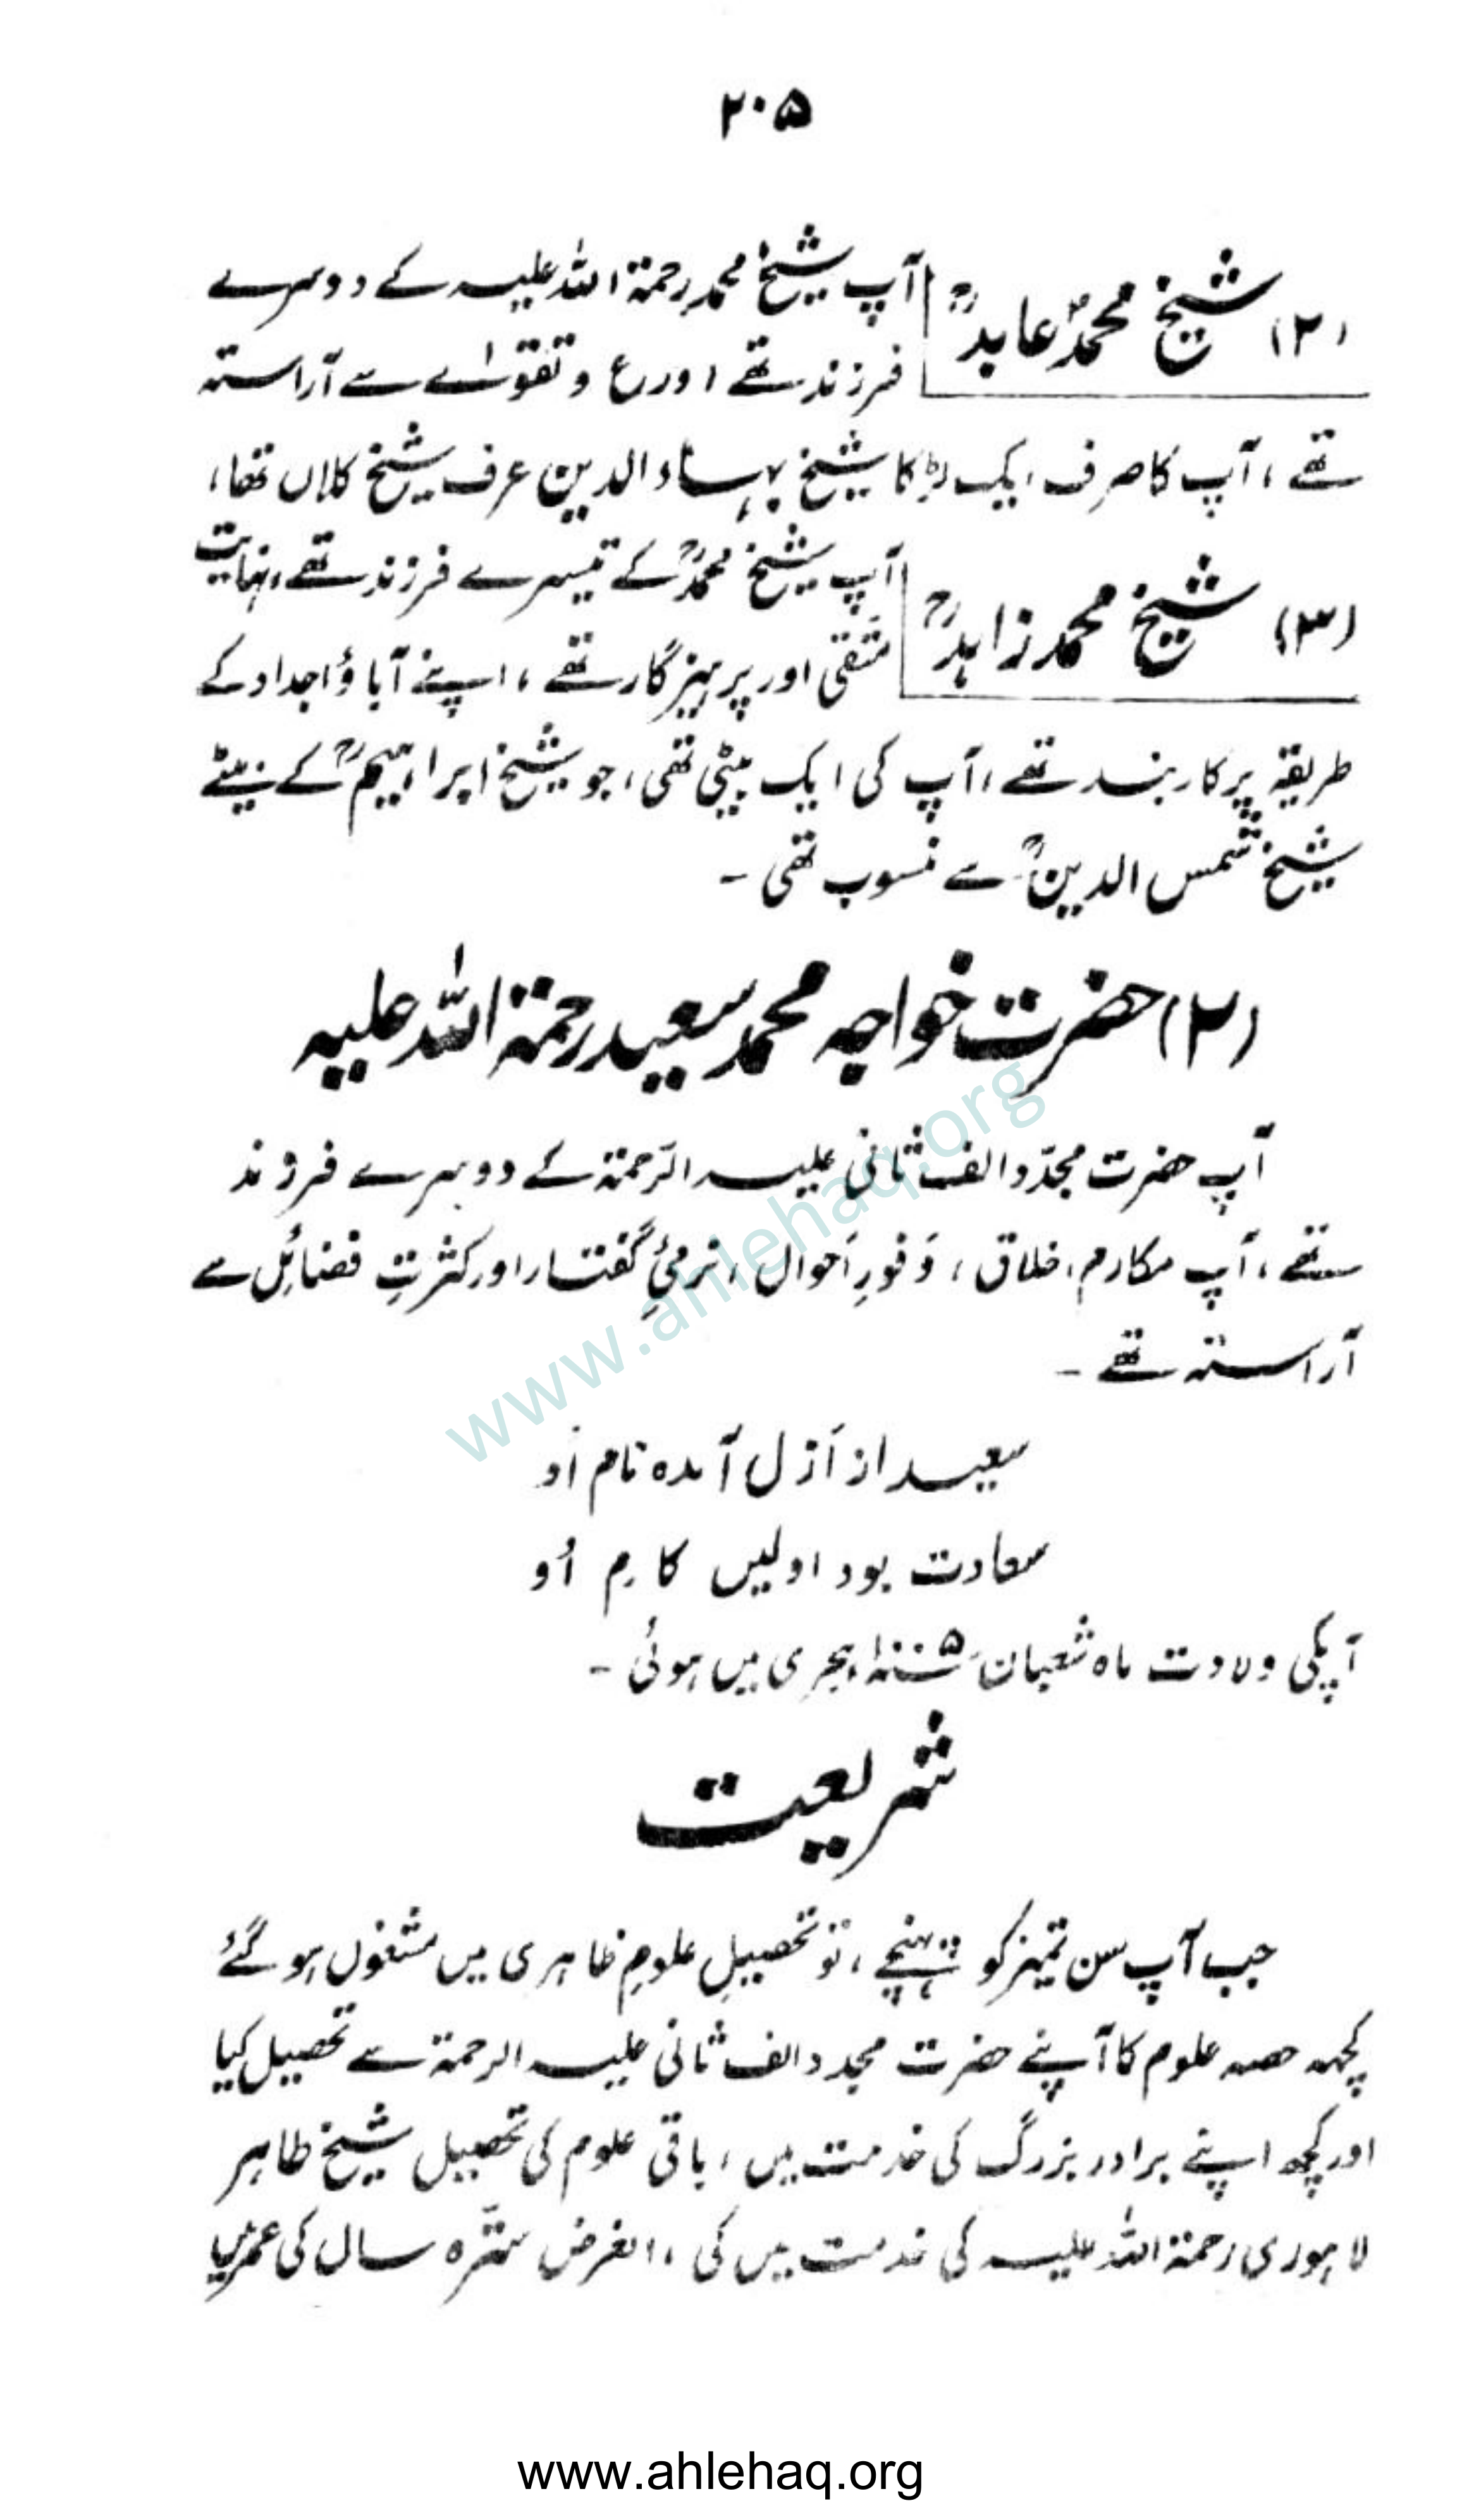 ۲۰۵
(۲) شیخ محمد عابدؒ
آپ شیخ محمد رحمۃ اللہ علیہ کے دوسرے
فرزند تھے اورع و تقوےٰ سے آراستہ
تھے، آپ کا صرف ایک لڑکا شیخ بہاء الدین عرف شیخ کلاں تھا،
(۳) شیخ محمد زاہدؒ
آپ شیخ محمدؒ کے تیسرے فرزند تھے، نہایت
متقی اور پرہیزگار تھے، اپنے آباؤ اجداد کے
طریقہ پر کاربند تھے، آپ کی ایک بیٹی تھی، جو شیخ ابراہیمؒ کے بیٹے
شیخ شمس الدینؒ سے منسوب تھی ۔
(۲) حضرت خواجہ محمد سعید رحمۃ اللہ علیہ
آپ حضرت مجدّد الف ثانی علیہ الرّحمۃ کے دوسرے فرزند
تھے، آپ مکارم اخلاق، وَفورِ اَحوال، نرمیٔ گفتار اور کثرتِ فضائِل سے
آراستہ تھے ۔
سعید از اَزل آمدہ نام اُو
سعادت بود اولیں کارِم اُو
آپکی ولادت ماہ شعبان ۱۰۰۵ ہجری میں ہوئی ۔
شریعت
جب آپ سن تمیز کو پہنچے، تو تحصیلِ علومِ ظاہری میں مشغول ہو گئے
کچھ حصہ علوم کا آپنے حضرت مجدد الف ثانی علیہ الرحمۃ سے تحصیل کیا
اور کچھ اپنے برادر بزرگ کی خدمت میں، باقی علوم کی تحصیل شیخ طاہر
لاہوری رحمۃ اللہ علیہ کی خدمت میں کی، الغرض سترہ سال کی عمر میں
www.ahlehaq.org
www.ahlehaq.org